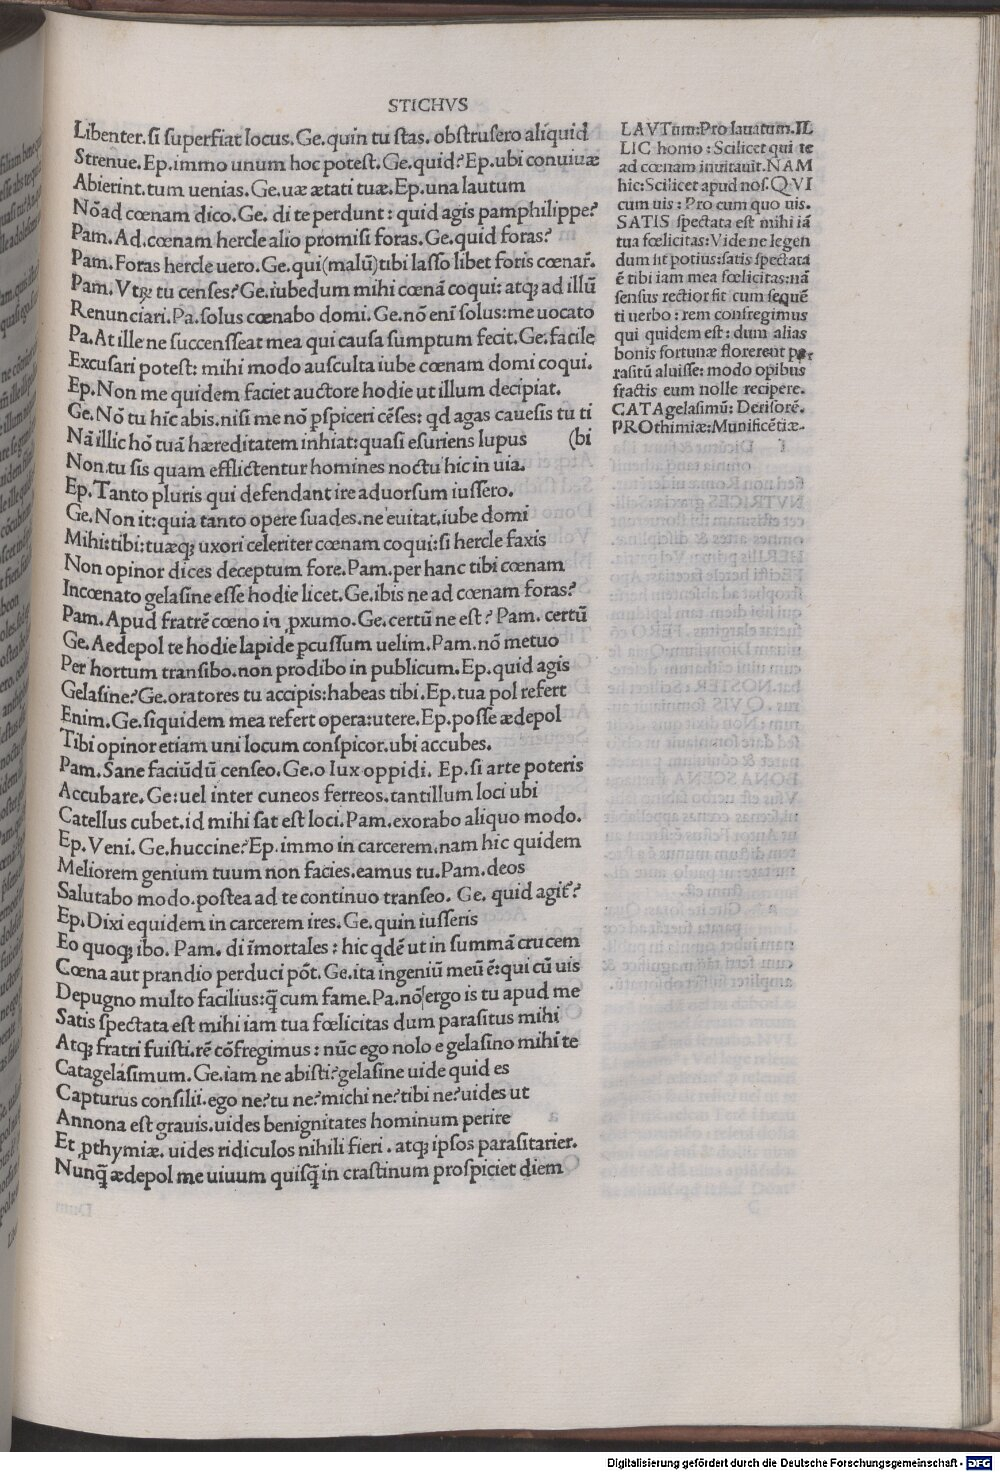 STICHVS
Libenter.si superfiat locus.Ge.quin tu stas.obstrusero aliquid
Strenue.Ep.immo unum hoc potest.Ge.quid?Ep.ubi conuiuæ
Abierint.tum uenias.Ge.uæ ætati tuæ.Ep.una lautum
Nō ad cœnam dico.Ge. di te perdunt : quid agis pamphilippe?
Pam.Ad.cœnam hercle alio promisi foras.Ge.quid foras?
Pam.Foras hercle uero.Ge.qui(malū)tibi lasso libet foris cœnar̄.
Pam.Vtrꝫ tu censes?Ge.iubedum mihi cœnā coqui: atqꝫ ad illū
Renunciari.Pa.solus cœnabo domi.Ge.nō enī solus:me uocato
Pa.At ille ne succensseat mea qui causa sumptum fecit.Ge.facile
Excusari potest: mihi modo ausculta iube cœnam domi coqui.
Ep.Non me quidem faciet auctore hodie ut illum decipiat.
Ge.Nō tu hīc abis.nisi me nō ꝑspiceri cēses: qd agas cauesis tu ti
Nā illic hō tuā hæreditatem inhiat:quasi esuriens lupus (bi
Non.tu sis quam efflictentur homines noctu hic in uia.
Ep.Tanto pluris qui defendant ire aduorsum iussero.
Ge.Non it:quia tanto opere suades.ne euitat.iube domi
Mihi:tibi:tuæqꝫ uxori celeriter cœnam coqui:si hercle faxis
Non opinor dices deceptum fore.Pam.per hanc tibi cœnam
Incœnato gelasine esse hodie licet.Ge.ibis ne ad cœnam foras?
Pam.Apud fratrē cœno in ꝓxumo.Ge.certū ne est? Pam. certū
Ge.Aedepol te hodie lapide ꝑcussum uelim.Pam.nō metuo
Per hortum transibo.non prodibo in publicum.Ep.quid agis
Gelasine?Ge.oratores tu accipis:habeas tibi.Ep.tua pol refert
Enim.Ge.siquidem mea refert opera:utere.Ep.posse ædepol
Tibi opinor etiam uni locum conspicor.ubi accubes.
Pam.Sane faciūdū censeo.Ge.o lux oppidi. Ep.si arte poteris
Accubare.Ge:uel inter cuneos ferreos.tantillum loci ubi
Catellus cubet.id mihi sat est loci.Pam.exorabo aliquo modo.
Ep.Veni.Ge.huccine?Ep.immo in carcerem.nam hic quidem
Meliorem genium tuum non facies.eamus tu.Pam.deos
Salutabo modo.postea ad te continuo transeo. Ge. quid agit̄?
Ep.Dixi equidem in carcerem ires.Ge.quin iusseris
Eo quoqꝫ ibo. Pam. di īmortales : hic qdē ut in summā crucem
Cœna aut prandio perduci pōt.Ge.ita ingeniū meū ē:qui cū uis
Depugno multo facilius:q̄ cum fame.Pa.nō ergo is tu apud me
Satis spectata est mihi iam tua fœlicitas dum parasitus mihi
Atqꝫ fratri fuisti.rē cōfregimus : nūc ego nolo e gelasino mihi te
Catagelasimum.Ge.iam ne abisti?gelasine uide quid es
Capturus consilii.ego ne?tu ne?michi ne?tibi ne?uides ut
Annona est grauis.uides benignitates hominum perire
Et ꝓthymiæ. uides ridiculos nihili fieri . atqꝫ ipsos parasitarier.
Nunq̄ ædepol me uiuum quisq̄ in crastinum prospiciet diem
LAVTum:Pro lauatum.IL
LIC homo : Scilicet qui te
ad cœnam inuitauit.NAM
hic:Scilicet apud nos.QVI
cum uis : Pro cum quo uis.
SATIS spectata est mihi iā
tua fœlicitas:Vide ne legen
dum sit potius:satis spectata
ē tibi iam mea fœlicitas:nā
sensus rectior fit cum sequē
ti uerbo : rem confregimus
qui quidem est : dum alias
bonis fortunæ florerent pa
rasitū aluisse: modo opibus
fractis eum nolle recipere.
CATAgelasimū: Derisorē.
PROthimiæ:Munificētiæ.
Digitalisierung gefördert durch die Deutsche Forschungsgemeinschaft - DFG